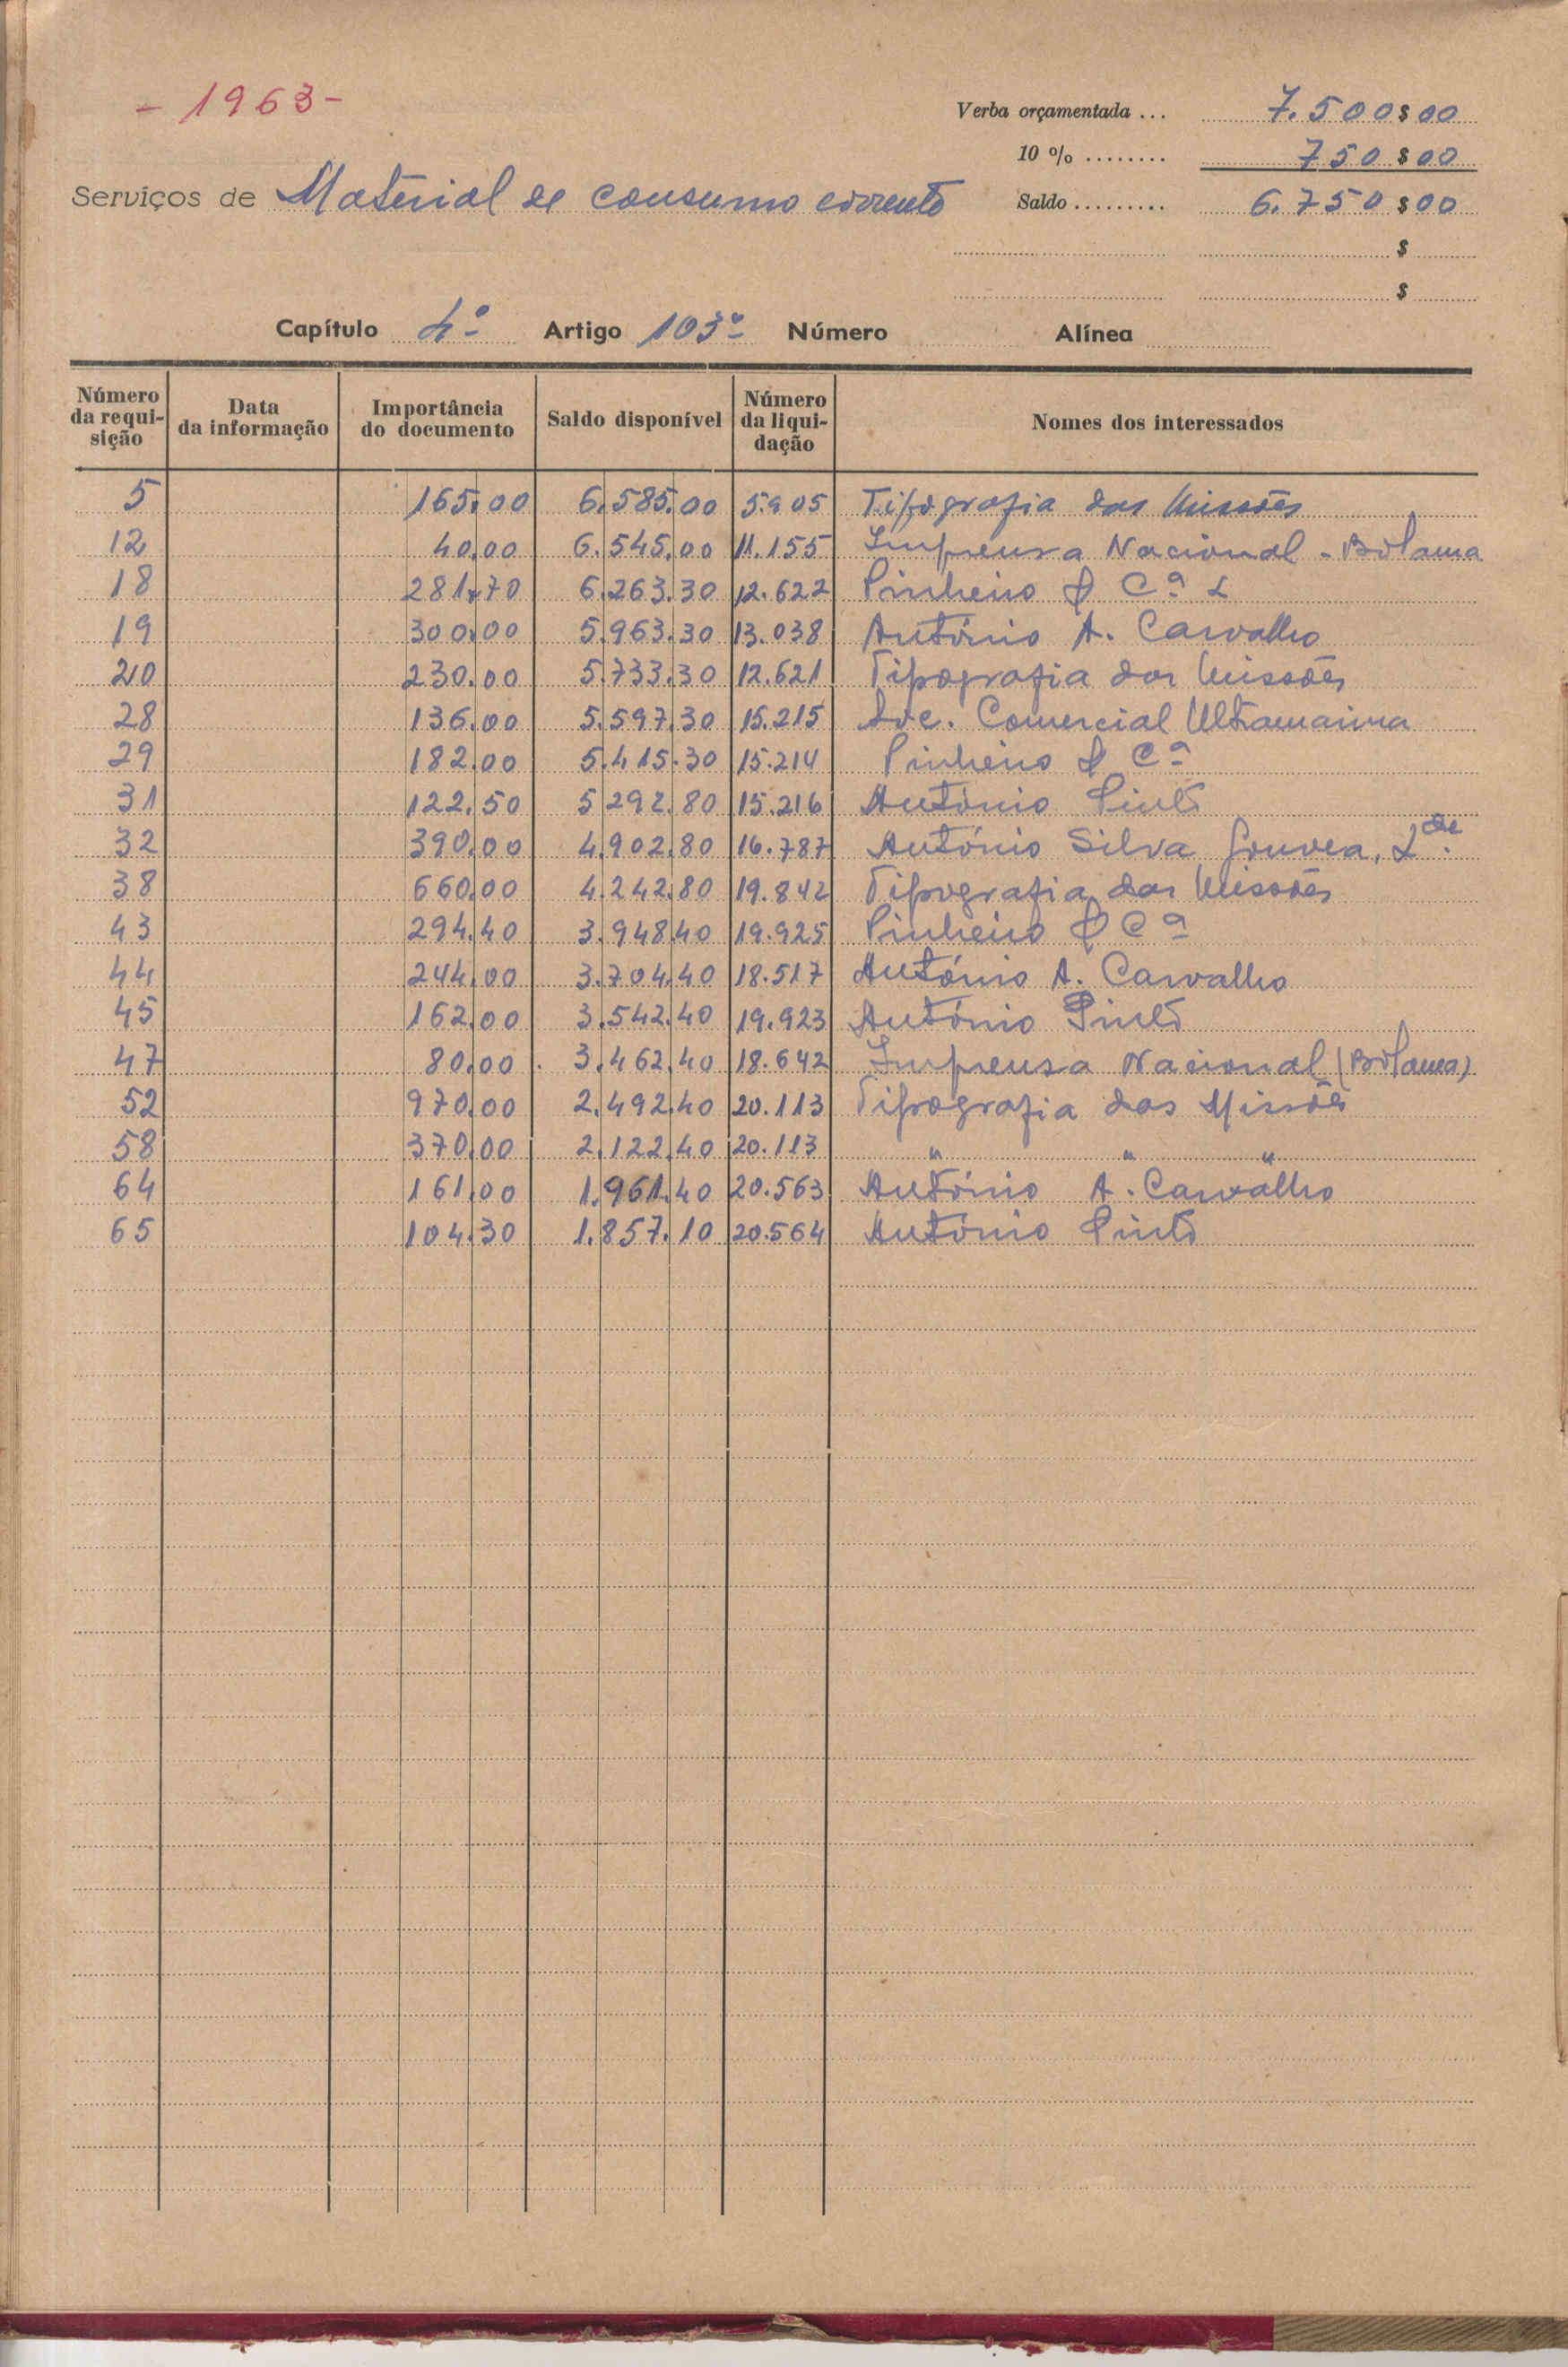 - 1963 -
Verba orçamentada ... 7.500$00
10 % ........ 750$00
Serviços de Material de consumo corrente
Saldo ......... 6.750$00
$
$
Capítulo 4º Artigo 103º Número Alínea
Número da requi-sição Data da informação Importância do documento Saldo disponível Número da liqui-dação Nomes dos interessados
5 165.00 6.585.00 5.905 Tipografia das Missões
12 40.00 6.545.00 11.155 Imprensa Nacional - Bolama
18 281.70 6.263.30 12.622 Pinheiro & Cª L
19 300.00 5.963.30 13.038 António A. Carvalho
20 230.00 5.733.30 12.621 Tipografia das Missões
28 136.00 5.597.30 15.215 Soc. Comercial Ultramarina
29 182.00 5.415.30 15.214 Pinheiro & Cª
31 122.50 5292.80 15.216 António Pinto
32 390.00 4.902.80 16.787 António Silva Gouvea, Lde.
38 660.00 4.242.80 19.842 Tipografia das Missões
43 294.40 3.948.40 19.925 Pinheiro & Cª
44 244.00 3.704.40 18.517 António A. Carvalho
45 162.00 3.542.40 19.923 António Pinto
47 80.00 3.462.40 18.642 Imprensa Nacional (Bolama)
52 970.00 2.492.40 20.113 Tipografia das Missões
58 370.00 2.122.40 20.113 " " "
64 161.00 1.961.40 20.563 António A. Carvalho
65 104.30 1.857.10 20.564 António Pinto